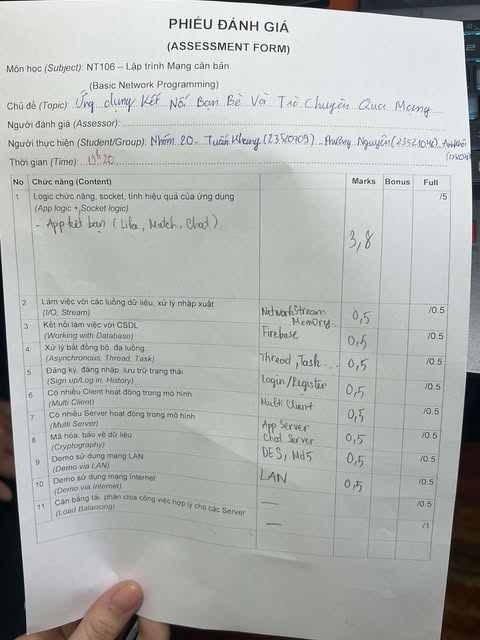 PHIẾU ĐÁNH GIÁ
(ASSESSMENT FORM)
Môn học (Subject): NT106 – Lập trình Mạng căn bản
(Basic Network Programming)
Chủ đề (Topic): Ứng dụng Kết Nối Bạn Bè Và Trò Chuyện Qua Mạng
Người đánh giá (Assessor):
Người thực hiện (Student/Group): Nhóm 20. Tuấn Khang (23520709) - Phương Nguyên (23521040)
Thời gian (Time): 13h20
No Chức năng (Content) Marks Bonus Full
1 Logic chức năng, socket, tính hiệu quả của ứng dụng /5
(App logic + Socket logic)
- App kết bạn (Like, Match, Chat)
3,8
2 Làm việc với các luồng dữ liệu, xử lý nhập xuất NetworkStream 0,5 /0.5
(I/O, Stream) Memory...
3 Kết nối làm việc với CSDL Firebase 0,5 /0.5
(Working with Database)
4 Xử lý bất đồng bộ, đa luồng Thread, Task... 0,5 /0.5
(Asynchronous, Thread, Task)
5 Đăng ký, đăng nhập, lưu trữ trạng thái Login/Register 0,5 /0.5
(Sign up/Log in, History)
6 Có nhiều Client hoạt động trong mô hình Multi Client 0,5 /0.5
(Multi Client)
7 Có nhiều Server hoạt động trong mô hình App Server 0,5 /0.5
(Mutli Server) Chat Server
8 Mã hóa, bảo vệ dữ liệu DES, Md5 0,5 /0.5
(Cryptography)
9 Demo sử dụng mạng LAN LAN 0,5 /0.5
(Demo via LAN)
10 Demo sử dụng mạng Internet — /0.5
(Demo via Internet)
11 Cân bằng tải, phân chia công việc hợp lý cho các Server — /1
(Load Balancing)